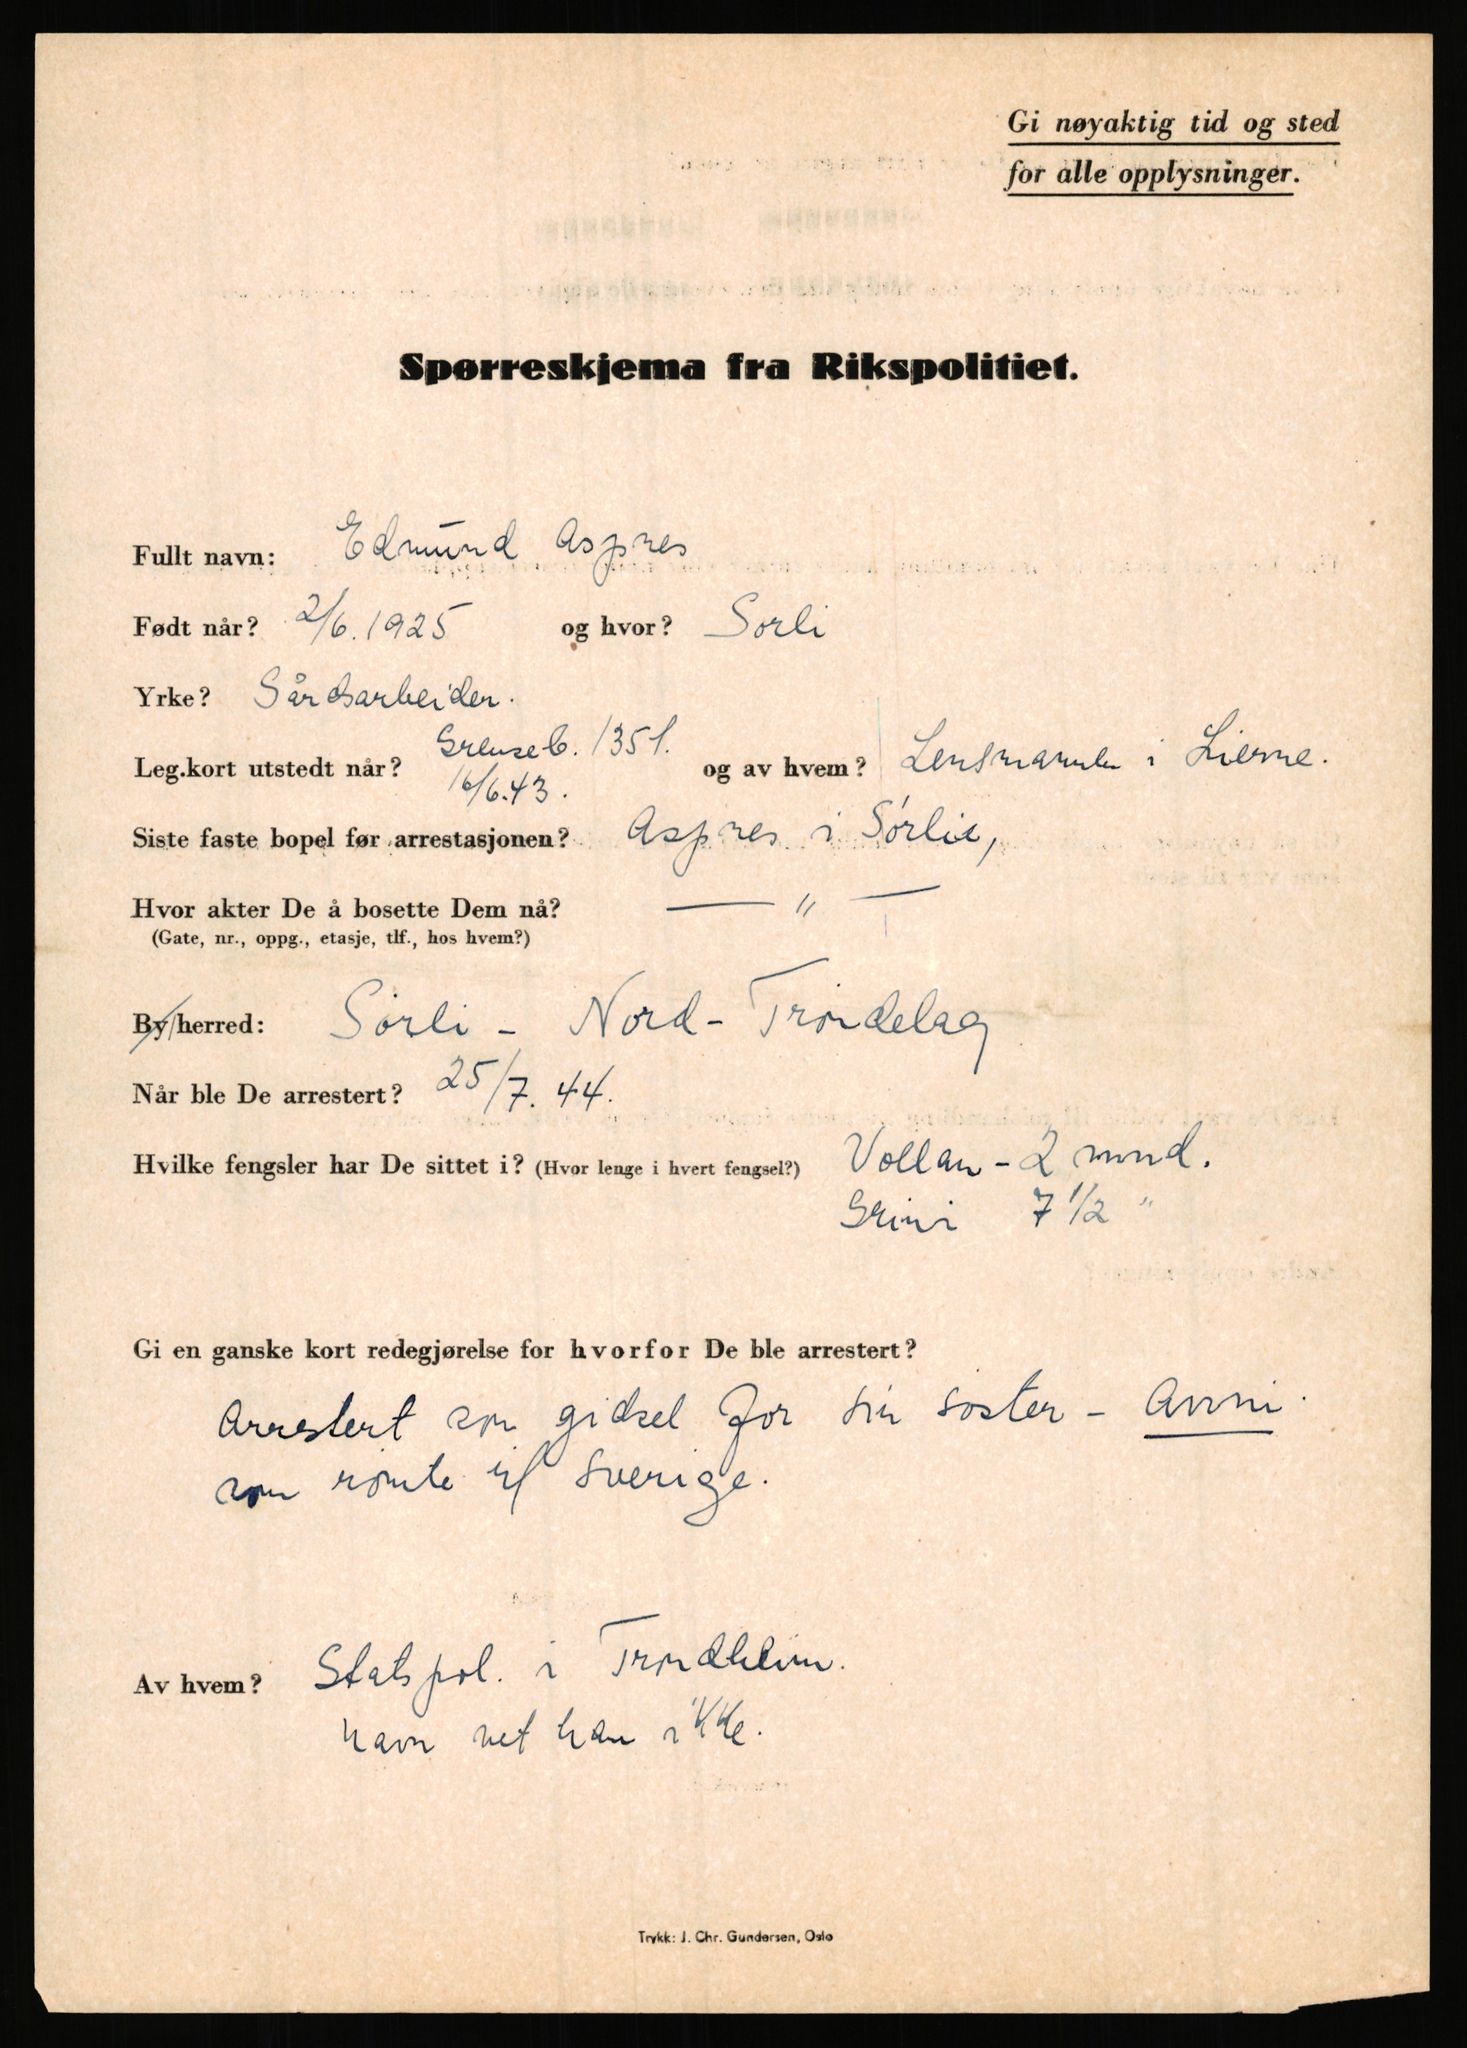 Gi nøyaktig tid og sted
for alle opplysninger.
Spørreskjema fra Rikspolitiet.
Fullt navn: Edmund Aspnes
Født når? 2/6. 1925 og hvor? Sørli
Yrke? Gårdsarbeider.
Grenseb. 1351.
Leg.kort utstedt når? 16/6.43. og av hvem? Lensmannen i Lierne.
Siste faste bopel før arrestasjonen? Aspnes i Sørlie,
Hvor akter De å bosette Dem nå? — " —
(Gate, nr., oppg., etasje, tlf., hos hvem?)
By/herred: Sørli - Nord-Trøndelag
Når ble De arrestert? 25/7. 44.
Hvilke fengsler har De sittet i? (Hvor lenge i hvert fengsel?) Vollan - 2 mnd.
Grini 7 1/2 "
Gi en ganske kort redegjørelse for hvorfor De ble arrestert?
Arrestert som gidsel for sin søster - Anni
som rømte til Sverige.
Av hvem? Statspol. i Trondheim.
Navn vet han ikke.
Trykk: J. Chr. Gundersen, Oslo